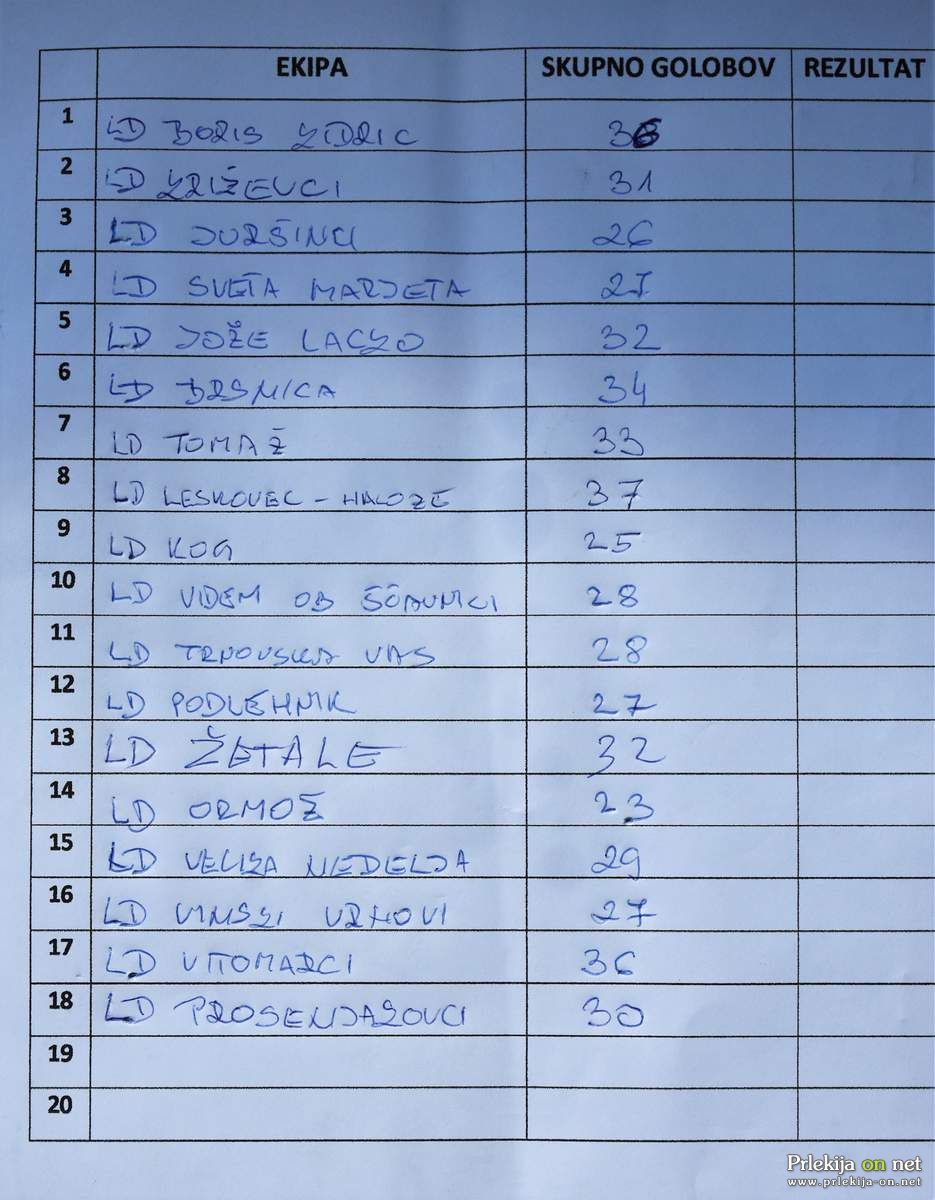 EKIPA SKUPNO GOLOBOV REZULTAT
1 LD BORIS KIDRIC
2 LD KRIŽEVCI 31
3 LD JURŠINCI 26
4 LD SVETA MARJETA 27
5 LD JOŽE LACKO 32
6 LD 34
7 LD TOMAŽ 33
8 LD LESKOVEC - HALOZE 37
9 LD KOG 25
10 LD VIDEM OB ŠČAVNICI 28
11 LD TRNOVSKA VAS 28
12 LD PODLEHNIK 27
13 LD ŽETALE 32
14 LD ORMOŽ 23
15 LD VELIKA NEDELJA 29
16 LD VINSKI VRHOVI 27
17 LD VITOMARCI 36
18 LD PROSENJAKOVCI 30
19
20
Prlekija on net
www.prlekija-on.net